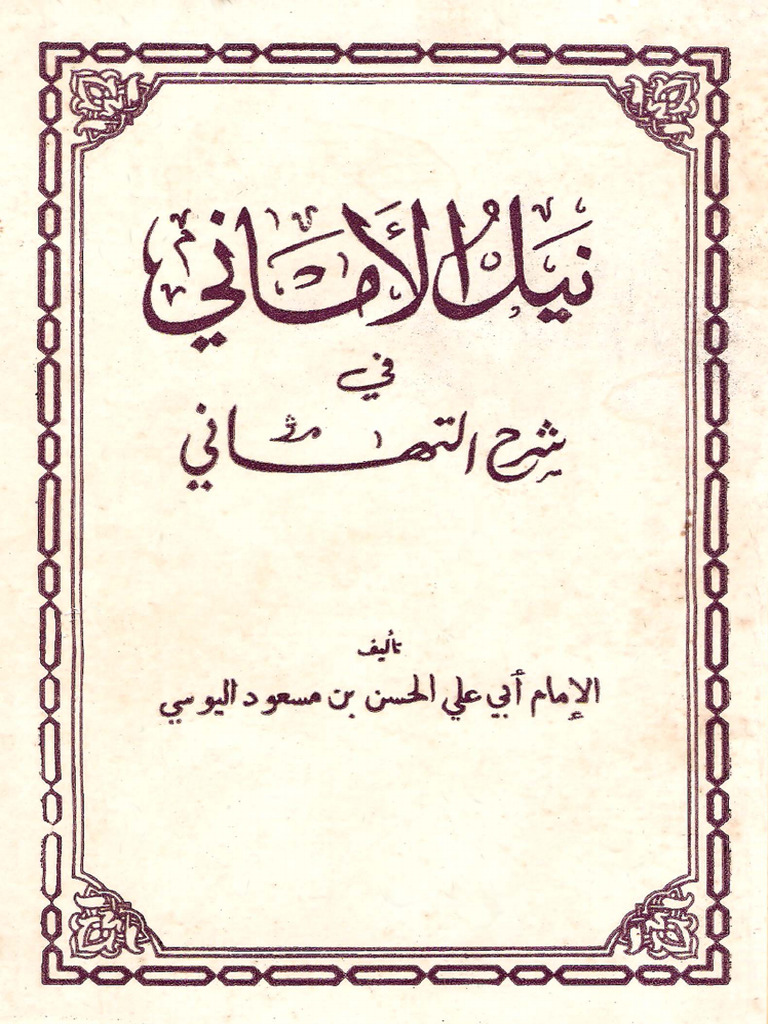 نَيلُ الأَمَاني
في
شرح التهاني
تأليف
الإمام أبي علي الحسن بن مسعود اليوسي